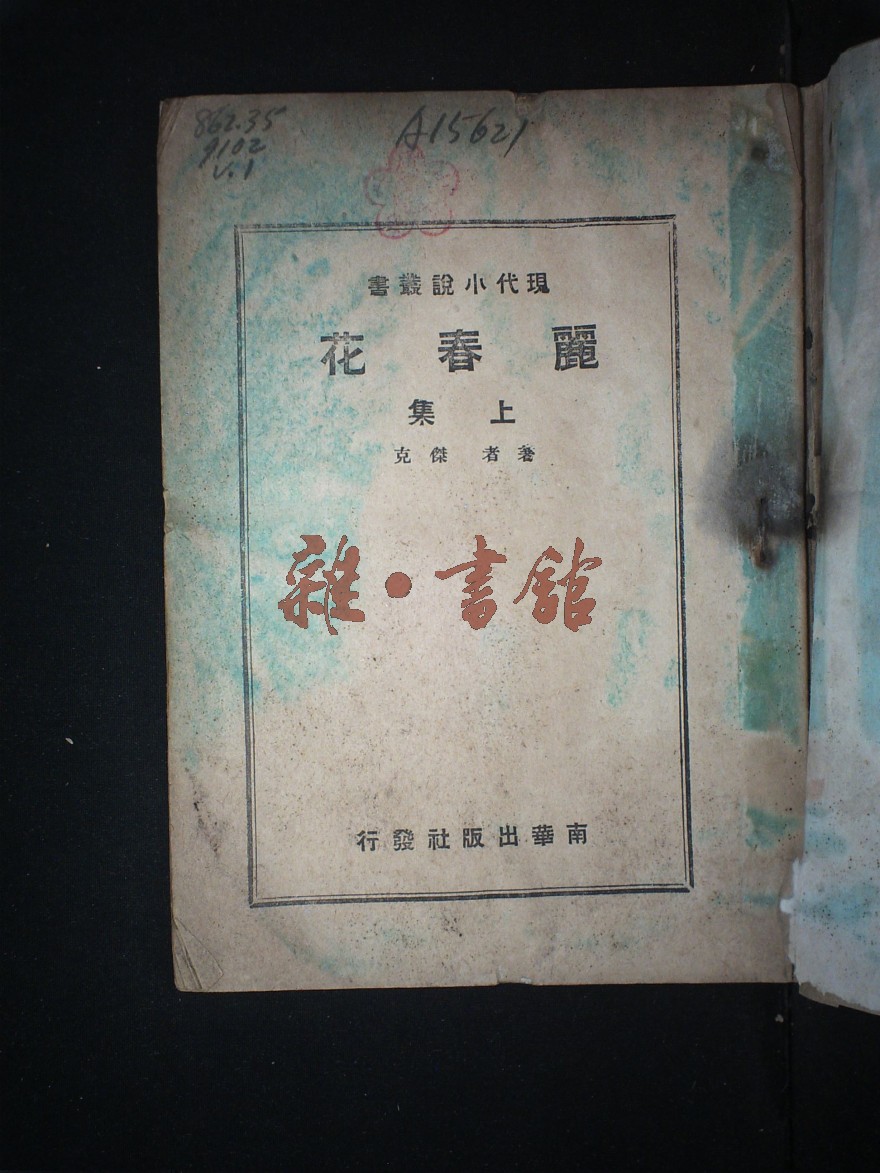 862.35
9102
v.1
A15621
現代小說叢書
麗春花
上集
著者 傑克
雜·書館
南華出版社發行